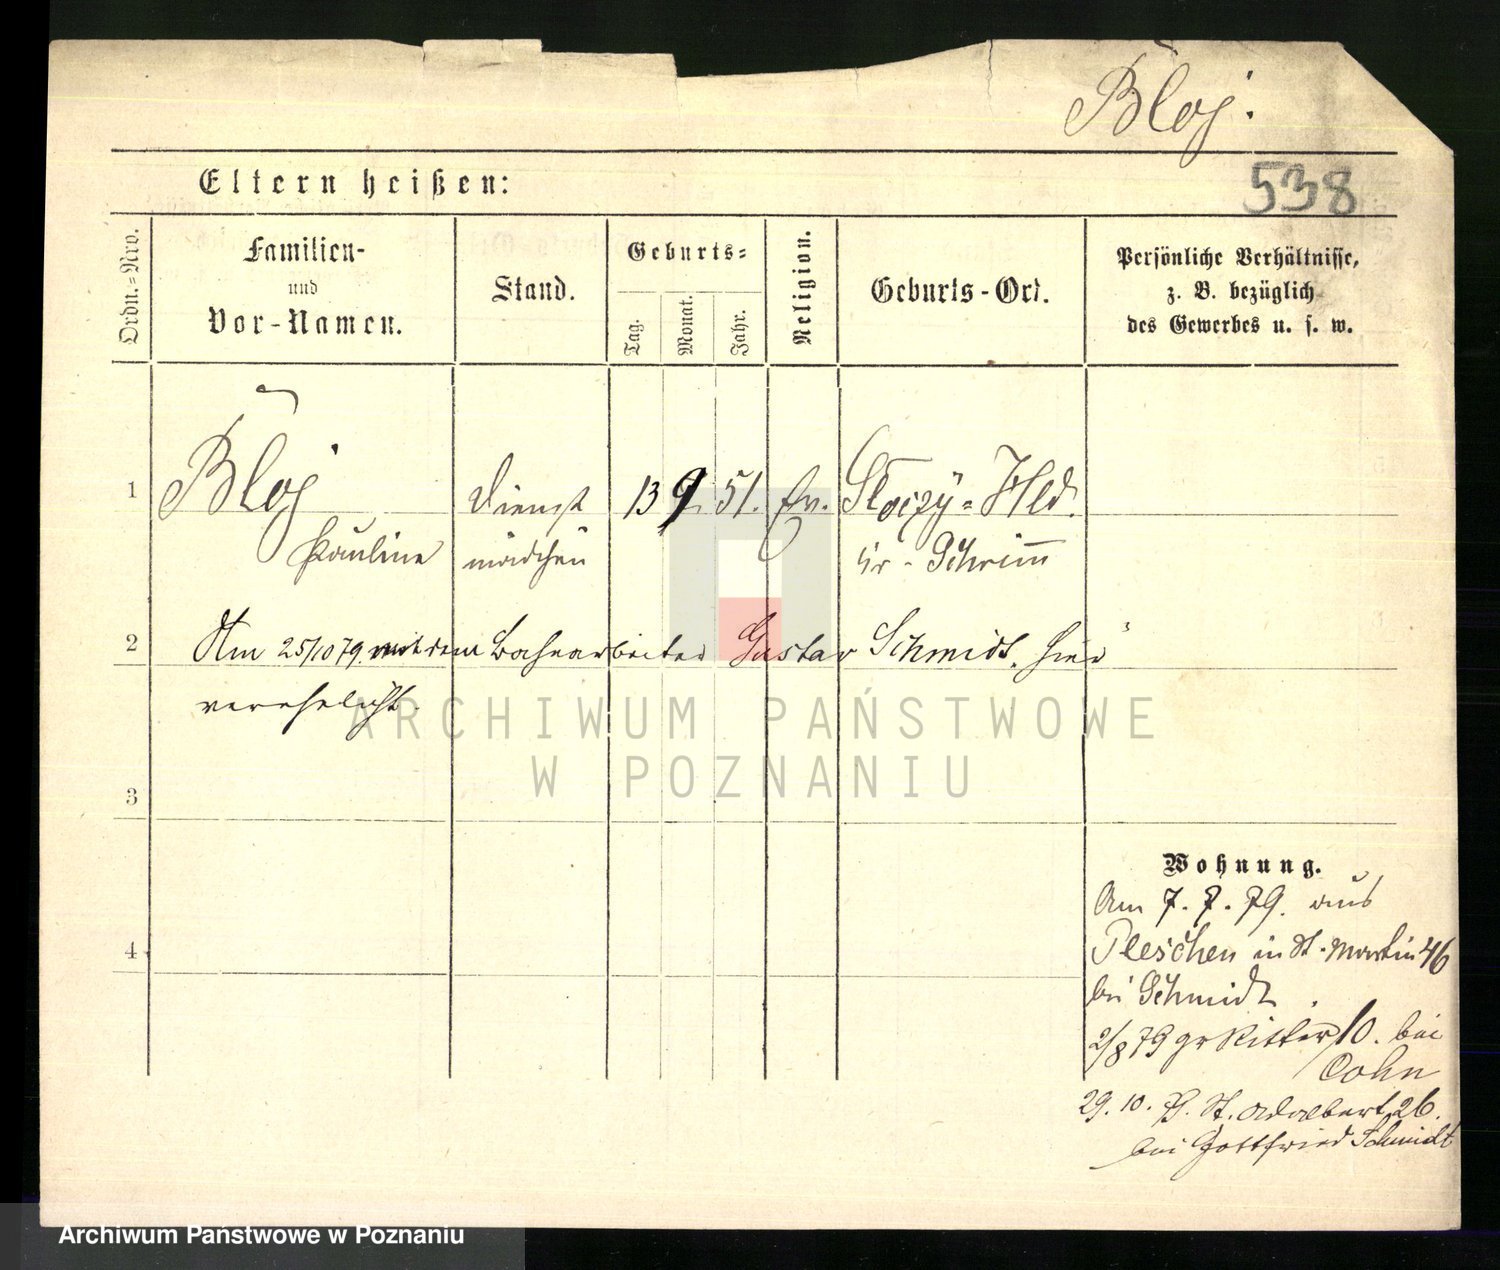 Bloj.
538
Eltern heißen:
Ordn.-Nro.
Familien-
und
Vor-Namen.
Stand.
Geburts-
Tag.
Monat.
Jahr.
Religion.
Geburts-Ort.
Persönliche Verhältnisse,
z. B. bezüglich
des Gewerbes u. s. w.
1 Bloj Dienst 13 9 51. ev. Hld.
Pauline mädchen Kr. Schrimm
2 Am 25/10 79. mit dem Bahnarbeiter Gustav Schmidt, hier
verehelicht.
3
4
Wohnung.
Am 7. 7. 79. aus
Pleschen in St. Martin 46
bei Schmidt
2/8 79 gr Ritter 10. bei
Cohn
29. 10. 79. St. Adalbert 26.
bei Gottfried Schmidt
ARCHIWUM PAŃSTWOWE
W POZNANIU
Archiwum Państwowe w Poznaniu